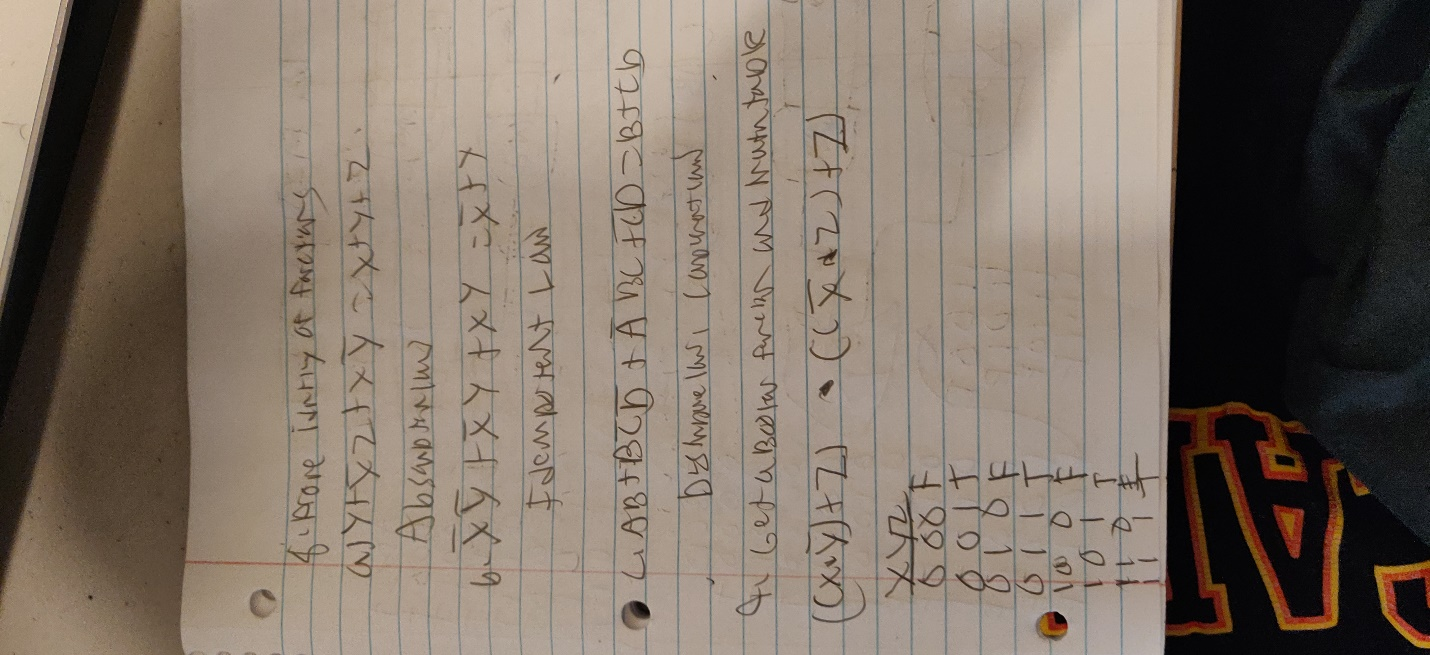 8. Prove identity of functions
a) Y + X̅Z + XY̅ = X + Y + Z
Absorption law
b. X̅Y̅ + X̅Y + XY = X̅ + Y
Idempotent Law
C. AB + BC̅D̅ + A̅BC + C̅D = B + C̅D
law
9. Get a Boolean function and truth table
((X Y̅) + Z) • ((X̅ Z) + Z)
X Y Z
0 0 0 F
0 0 1 T
0 1 0 F
0 1 1 T
1 0 0 F
1 0 1 T
1 1 0 F
1 1 1 T